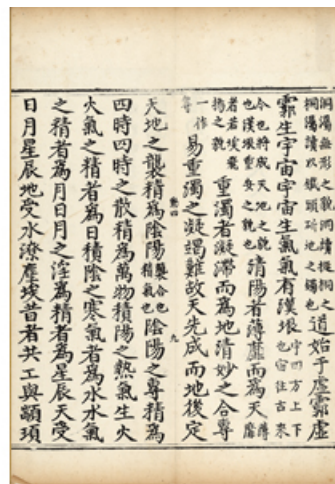 洞灟無形之貌洞讀挺挏
挏灟讀以鐵頭斫地之鐲也
道始于虛霩虛
霩生宇宙宇宙生氣氣有漢垠
宇四方上下
也宙往古來
今也將成天地之貌
也漢垠重安之貌也
清陽者薄靡而為天
薄
靡
者若埃飛
揚之貌
重濁者凝滯而為地清妙之合專
一作
易重濁之凝竭難故天先成而地後定
九
天地之襲精為陰陽
襲合也
精氣也
陰陽之專精為
四時四時之散精為萬物積陽之熱氣生火
火氣之精者為日積陰之寒氣者為水水氣
之精者為月日月之淫為精者為星辰天受
日月星辰地受水潦塵埃昔者共工與顓頊